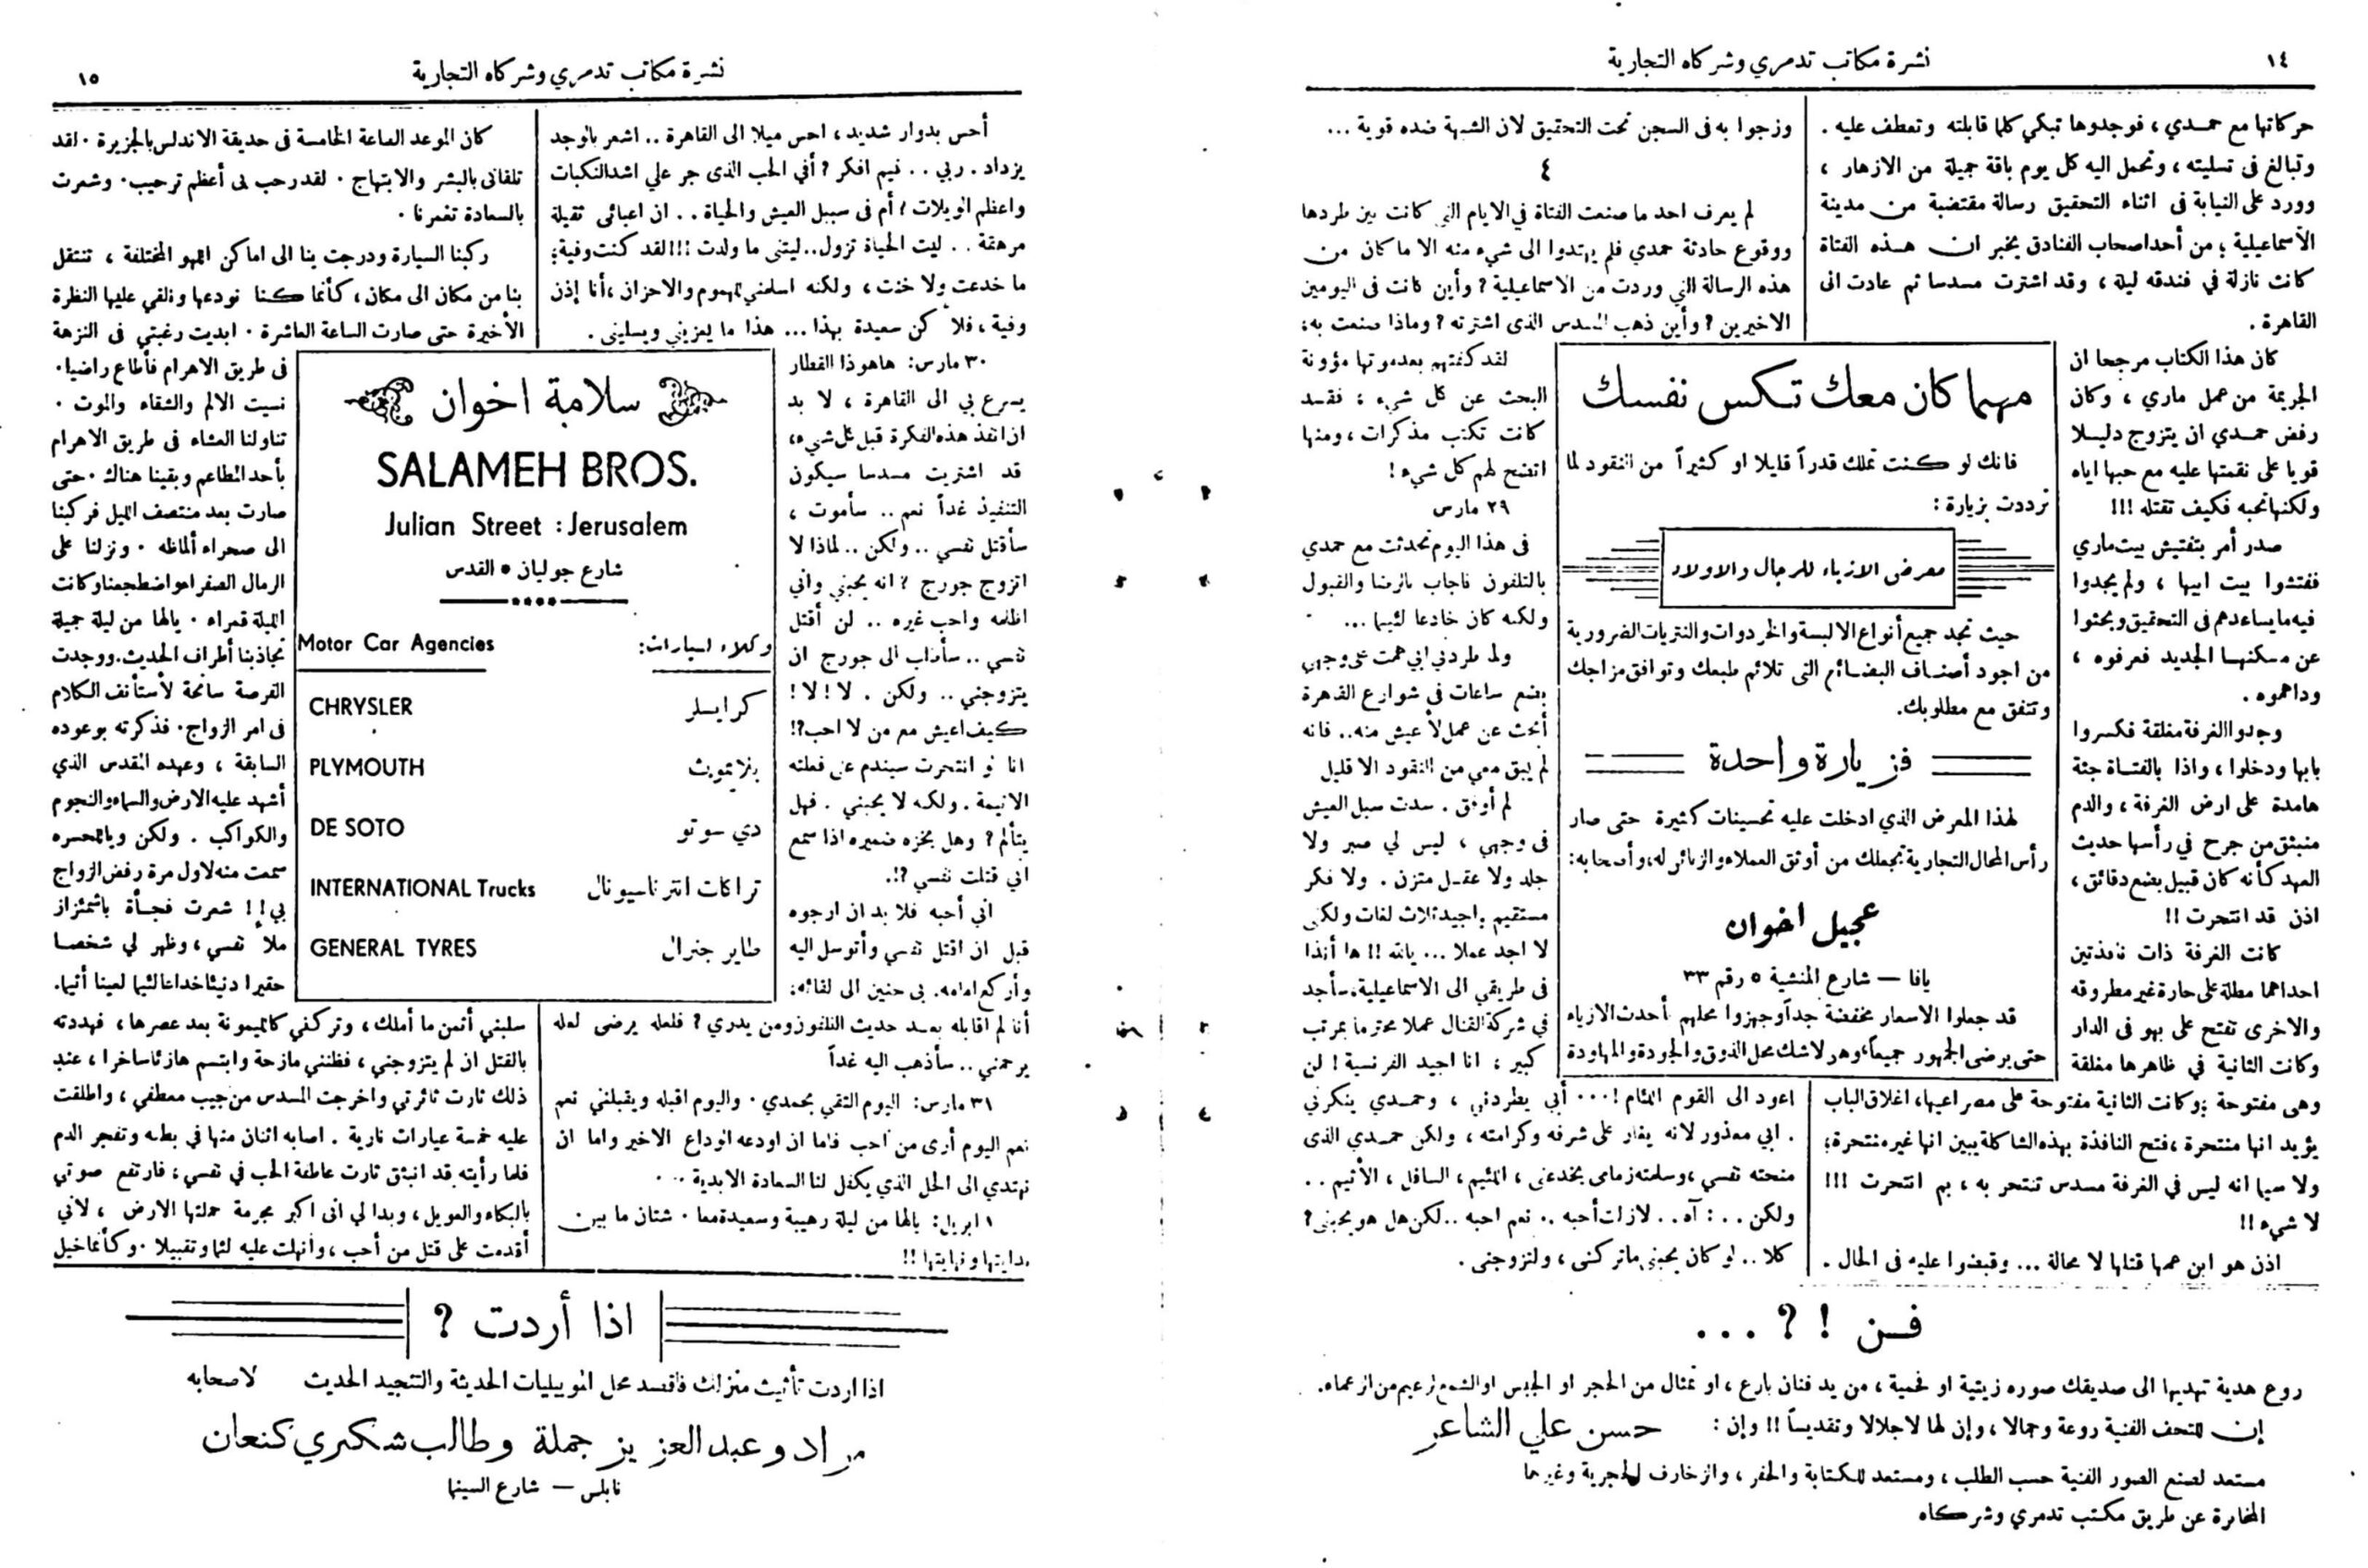 ١٤
نشرة مكاتب تدمري وشركاه التجارية
حركاتها مع حمدي ، فوجدوها تبكي كلما قابلته وتعطف عليه .
وتبالغ فى تسليته ، وتحمل اليه كل يوم باقة جميلة من الازهار ،
وورد على النيابة فى اثناء التحقيق رسالة مقتضبة من مدينة
الاسماعيلية ؛ من أحد اصحاب الفنادق يخبر ان هذه الفتاة
كانت نازلة في فندقه ليلة ، وقد اشترت مسدسا ثم عادت الى
القاهرة .
كان هذا الكتاب مرجحا ان
الجريمة من عمل ماري ، وكان
رفض حمدي ان يتزوج دليلا
قويا على نقمتها عليه مع حبها اياه
ولكنها تحبه فكيف تقتله !!!
صدر أمر بتفتيش بيت ماري
ففتشوا بيت ابيها ، ولم يجدوا
فيه ما يساعدهم فى التحقيق وبحثوا
عن مسكنها الجديد فعرفوه ،
وداهموه .
وجدوا الغرفة مغلقة فكسروا
بابها ودخلوا ، واذا بالفتاة جثة
هامدة على ارض الغرفة ، والدم
منبثق من جرح في رأسها حديث
العهد كأنه كان قبيل بضع دقائق ،
اذن قد انتحرت !!
كانت الغرفة ذات نافذتين
احداهما مطلة على حارة غير مطروقه
والاخرى تفتح على بهو فى الدار
وكانت الثانية في ظاهرها مغلقة
وهى مفتوحة ؛ وكانت الثانية مفتوحة على مصراعيها، اغلاق الباب
يؤيد انها منتحرة ، فتح النافذة بهذه الشاكلة يبين انها غير منتحرة ؛
ولا سيما انه ليس في الغرفة مسدس تنتحر به ، بم انتحرت !!!
لا شيء !!
اذن هو ابن عمها قتلها لا محالة ... وقبضوا عليه فى الحال .
وزجوا به فى السجن تحت التحقيق لان الشبهة ضده قوية ...
٤
لم يعرف احد ما صنعت الفتاة في الايام التي كانت بين طردها
ووقوع حادثة حمدي فلم يهتدوا الى شيء منه الا ما كان من
هذه الرسالة التي وردت من الاسماعيلية ? وأين كانت فى اليومين
الاخيرين ? وأين ذهب المسدس الذى اشترته ? وماذا صنعت به ؛
لقد كفتهم بعد موتها مؤونة
البحث عن كل شيء ؛ فقد
كانت تكتب مذكرات ، ومنها
اتضح لهم كل شيء !
٢٩ مارس
فى هذا اليوم تحدثت مع حمدي
بالتلفون فاجاب بالرضا والقبول
ولكنه كان خادعا لئيما ...
ولما طردني ابي همت على وجهي
بضع ساعات فى شوارع القاهرة
أبحث عن عمل لأعيش منه .. فانه
لم يبق معي من النقود الا قليل
لم أوفق . سدت سبل العيش
فى وجهي ، ليس لي صبر ولا
جلد ولا عقل متزن . ولا فكر
مستقيم . اجيد ثلاث لغات ولكنى
لا اجد عملا ... يالله !! ها أنذا
فى طريقي الى الاسماعيلية . سأجد
في شركة القنال عملا محترما بمرتب
كبير ؛ انا اجيد الفرنسية ! لن
اعود الى القوم اللئام ! ... أبي يطردني ، وحمدي ينكرني
. ابي معذور لانه يغار على شرفه وكرامته ، ولكن حمدي الذى
منحته نفسي ، وسلمته زمامى يخدعنى ، اللئيم ، السافل ، الأثيم ..
ولكن .. : آه .. لازلت أحبه .. نعم احبه .. لكن هل هو يحبنى ?
كلا .. لو كان يحبنى ما تركنى ، ولتزوجنى .
مهما كان معك تكس نفسك
فانك لو كنت تملك قدراً قليلا او كثيراً من النقود لما
ترددت بزيارة :
معرض الازياء للرجال والاولاد
حيث تجد جميع أنواع الالبسة والخردوات والنتريات الضرورية
من اجود أصناف البضائع التى تلائم طبعك وتوافق مزاجك
وتتفق مع مطلوبك .
فزيارة واحدة
لهذا المعرض الذي ادخلت عليه تحسينات كثيرة حتى صار
رأس المحال التجارية تجعلك من أوثق العملاء والزبائن له، وأصحابه :
عجيل اخوان
يافا — شارع المنشية ٥ رقم ٣٣
قد جعلوا الاسعار مخفضة جداً وجهزوا محلهم أحدث الازياء
حتى يرضى الجمهور جميعاً، وهو لاشك محل الذوق والجودة والمهاودة
فن ! ? ...
روع هدية تهديها الى صديقك صوره زيتية او فحمية ، من يد فنان بارع ، او تمثال من الحجر او الجبس او الشمع لزعيم من الزعماء .
إن للتحف الفنية روعة وجمالا ، وإن لها لاجلالا وتقديساً !! وإن : حسن علي الشاعر
مستعد لصنع الصور الفنية حسب الطلب ، ومستعد للكتابة والحفر ، والزخارف الحجرية وغيرهما
المخابرة عن طريق مكتب تدمري وشركاه
نشرة مكاتب تدمري وشركاه التجارية
١٥
أحس بدوار شديد ، احس ميلا الى القاهرة .. اشعر بالوجد
يزداد . ربي .. فيم افكر ? أفي الحب الذى جر علي اشد النكبات
واعظم الويلات ؛ أم فى سبيل العيش والحياة .. ان اعبائى ثقيلة
مرهقة .. ليت الحياة تزول .. ليتنى ما ولدت !!! لقد كنت وفية ؛
ما خدعت ولا خنت ، ولكنه اسلمني للهموم والاحزان ، أنا إذن
وفية ، فلأكن سعيدة بهذا ... هذا ما يعزيني ويسليني .
٣٠ مارس : هاهوذا القطار
يسرع بي الى القاهرة ، لا بد
ان انفذ هذه الفكرة قبل كل شيء ،
قد اشتريت مسدسا سيكون
التنفيذ غداً نعم .. سأموت ،
سأقتل نفسي .. ولكن .. لماذا لا
اتزوج جورج ? انه يحبني واني
اظلمه واحب غيره .. لن أقتل
نفسي .. سأذاب الى جورج ان
يتزوجني .. ولكن . لا ! لا !
كيف اعيش مع من لا احب ?!
انا لو انتحرت سيندم على فعلته
الاثيمة . ولكنه لا يحبني . فهل
يتألم ? وهل يخزه ضميره اذا سمع
اني قتلت نفسي ?!.
اني أحبه فلا بد ان ارجوه
قبل ان اقتل نفسي وأتوسل اليه
وأركع امامه. بى حنين الى لقائه ؛
أنا لم اقابله بعد حديث التلفون ومن يدري ? فلعله يرضى لعله
يرحمني .. سأذهب اليه غداً
٣١ مارس : اليوم التقي بحمدي . واليوم اقبله ويقبلني نعم
نعم اليوم أرى من أحب فاما ان اودعه الوداع الاخير واما ان
نهتدي الى الحل الذي يكفل لنا السعادة الابدية ..
١ ابريل : يالها من ليلة رهيبة وسعيدة معا . شتان ما بين
بدايتها ونهايتها !!
كان الموعد الساعة الخامسة فى حديقة الاندلس بالجزيرة . لقد
تلقانى بالبشر والابتهاج . لقد رحب بى أعظم ترحيب . وشعرت
بالسعادة تغمرنا .
ركبنا السيارة ودرجت بنا الى اماكن اللهو المختلفة ، تنتقل
بنا من مكان الى مكان ، كأنما كنا نودعها ونلقي عليها النظرة
الأخيرة حتى صارت الساعة العاشرة . ابديت رغبتي فى النزهة
فى طريق الاهرام فأطاع راضيا .
نسيت الالم والشقاء والموت .
تناولنا العشاء فى طريق الاهرام
بأحد المطاعم وبقينا هناك . حتى
صارت بعد منتصف الليل فركبنا
الى صحراء ألماظه . ونزلنا على
الرمال الصفراء واضطجعنا وكانت
الليلة قمراء . يالها من ليلة جميلة
تجاذبنا أطراف الحديث. ووجدت
الفرصة سانحة لأستأنف الكلام
فى امر الزواج . فذكرته بوعوده
السابقة ، وعهده المقدس الذي
أشهد عليه الارض والسماء والنجوم
والكواكب . ولكن وياللحسره
سمعت منه لاول مرة رفض الزواج
بي !! شعرت فجأة باشمئزاز
ملأ نفسي ، وظهر لي شخصا
حقيرا دنيئا خداعا لئيما لعينا أثيما.
سلبني أثمن ما أملك ، وتركني كالليمونة بعد عصرها ، فهددته
بالقتل ان لم يتزوجني ، فظنني مازحة وابتسم هازئا ساخرا ، عند
ذلك ثارت ثائرتي واخرجت المسدس من جيب معطفي ، واطلقت
عليه خمسة عيارات نارية . اصابه اثنان منها في بطنه وتفجر الدم
فلما رأيته قد انبثق ثارت عاطفة الحب في نفسي ، فارتفع صوتي
بالبكاء والعويل ، وبدا لي انى اكبر مجرمة حملتها الارض ، لاني
أقدمت على قتل من أحب ، وانهلت عليه لثما وتقبيلا . وكأنما خيل
سلامة اخوان
SALAMEH BROS.
Julian Street : Jerusalem
شارع جوليان • القدس
Motor Car Agencies وكلاء اسيارات :
CHRYSLER كرايسلر
PLYMOUTH بلايموث
DE SOTO دي سوتو
INTERNATIONAL Trucks تراكات انترناسيونال
GENERAL TYRES طاير جنرال
اذا أردت ?
اذا اردت تأثيث منزلك فاقصد محل الموبيليات الحديثة والتنجيد الحديث لاصحابه
مراد وعبد العزيز جملة وطالب شكري كنعان
نابلس — شارع السينما